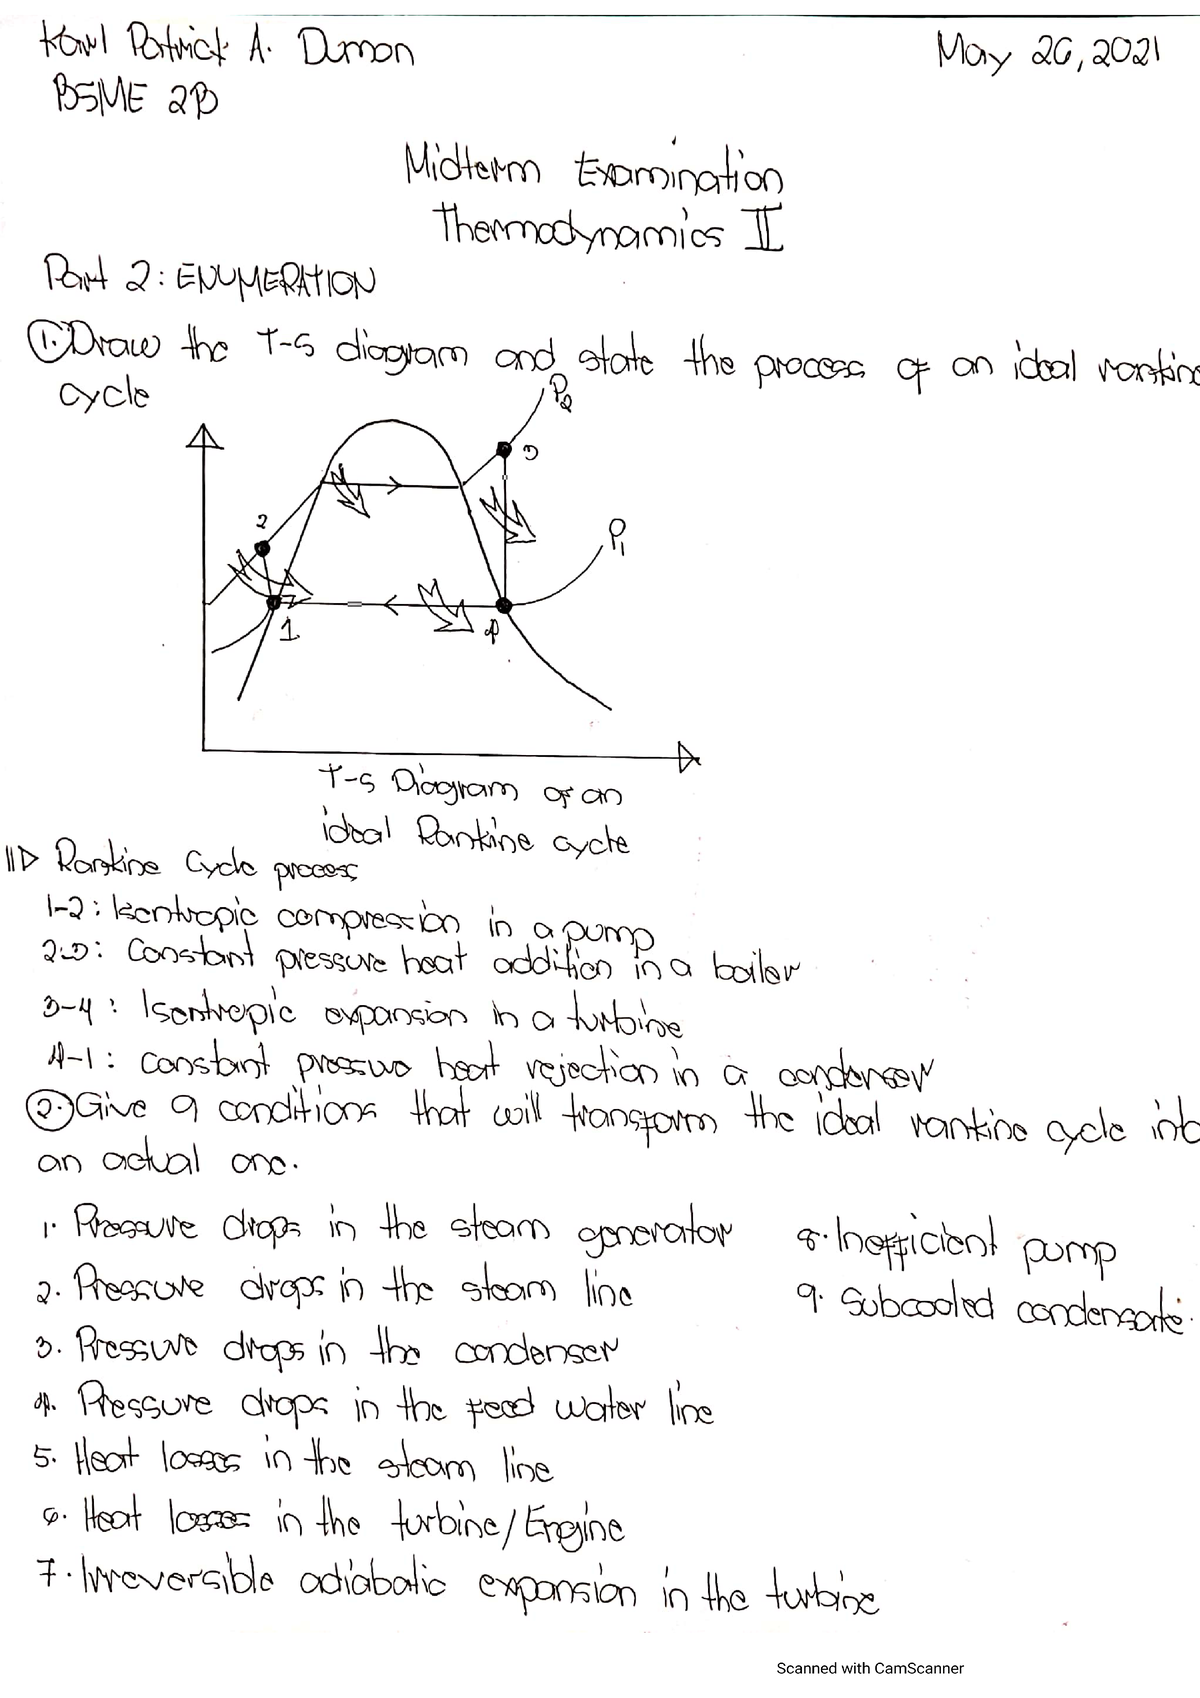 Karl Patrick A. Dumon
May 26, 2021
BSME 2B
Midterm Examination
Thermodynamics II
Part 2: ENUMERATION
1. Draw the T-S diagram and state the process of an ideal rankine
cycle
P2
3
2
P1
1
4
T-S Diagram of an
ideal Rankine cycle
Rankine Cycle process
1-2: Isentropic compression in a pump
2-3: Constant pressure heat addition in a boiler
3-4: Isentropic expansion in a turbine
4-1: Constant pressure heat rejection in a condenser
2. Give 9 conditions that will transform the ideal rankine cycle into
an actual one.
1. Pressure drops in the steam generator
2. Pressure drops in the steam line
3. Pressure drops in the condenser
4. Pressure drops in the feed water line
5. Heat losses in the steam line
6. Heat losses in the turbine/Engine
7. Irreversible adiabatic expansion in the turbine
8. Inefficient pump
9. Subcooled condensate.
Scanned with CamScanner